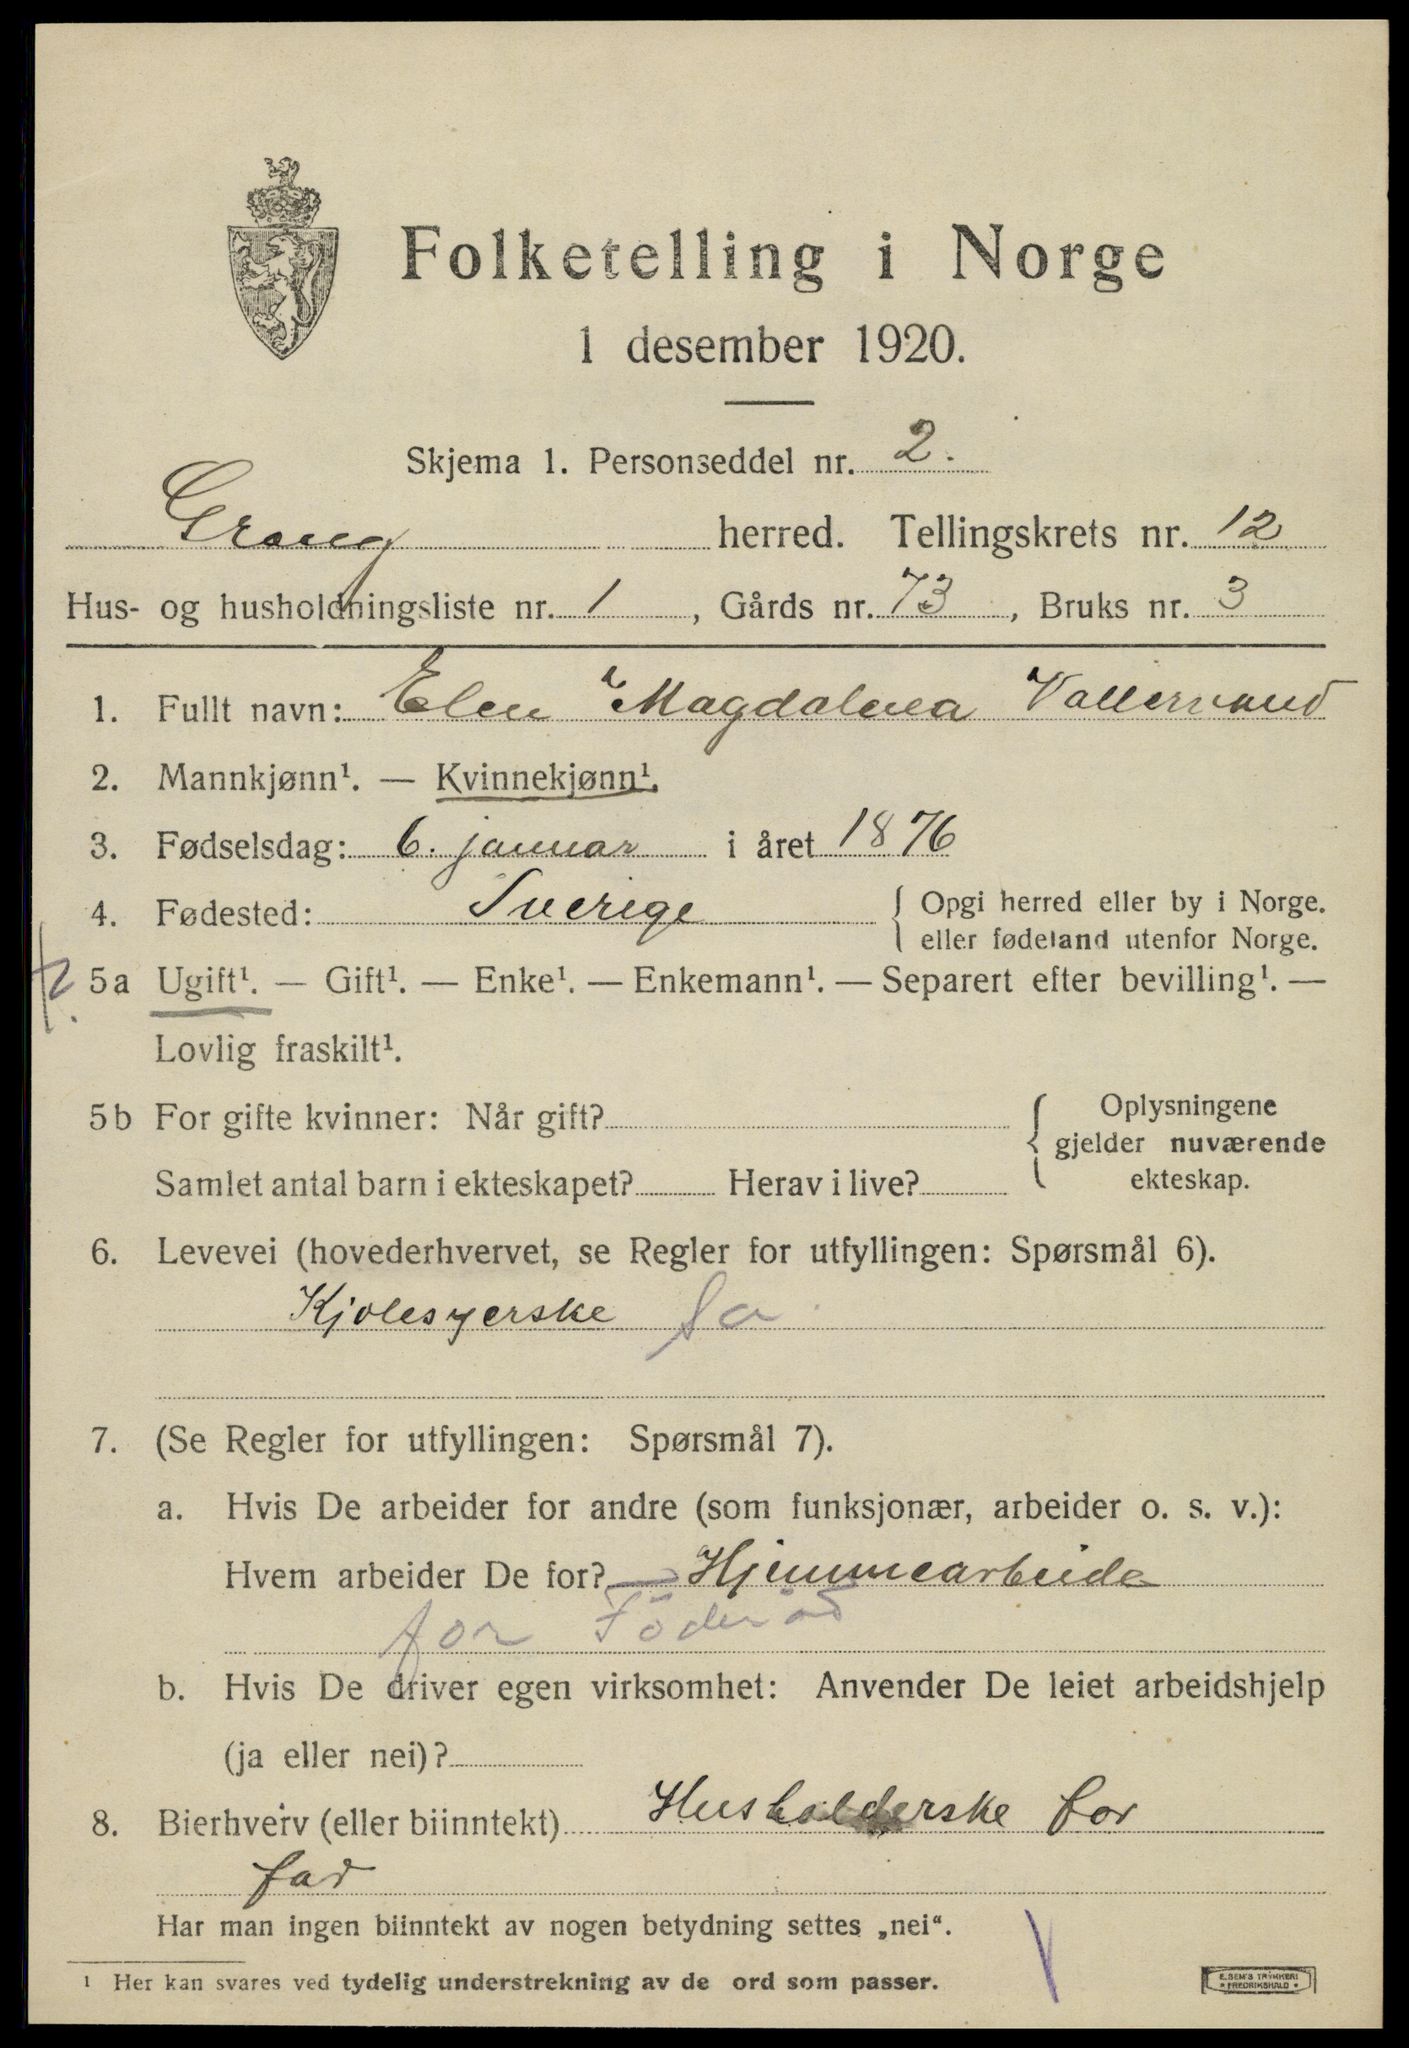 Folketelling i Norge
1 desember 1920.
Skjema 1. Personseddel nr. 2.
Grong herred. Tellingskrets nr. 12
Hus- og husholdningsliste nr. 1, Gårds nr. 73, Bruks nr. 3
1. Fullt navn: Elen Magdalena Vallervand
2. Mannkjønn¹. — Kvinnekjønn¹.
3. Fødselsdag: 6. januar i året 1876
4. Fødested: Sverige { Opgi herred eller by i Norge.
eller fødeland utenfor Norge.
5a Ugift¹. — Gift¹. — Enke¹. — Enkemann¹. — Separert efter bevilling¹. —
Lovlig fraskilt¹.
5b For gifte kvinner: Når gift? { Oplysningene
gjelder nuværende
Samlet antal barn i ekteskapet? Herav i live? ekteskap.
6. Levevei (hovederhvervet, se Regler for utfyllingen: Spørsmål 6).
Kjolesyerske
7. (Se Regler for utfyllingen: Spørsmål 7).
a. Hvis De arbeider for andre (som funksjonær, arbeider o. s. v.):
Hvem arbeider De for? Hjemmearbeide
for Föderåd
b. Hvis De driver egen virksomhet: Anvender De leiet arbeidshjelp
(ja eller nei)?
8. Bierhverv (eller biinntekt) Husholderske for
far
Har man ingen biinntekt av nogen betydning settes „nei“.
¹ Her kan svares ved tydelig understrekning av de ord som passer.
E. SEM'S TRYKKERI
* FREDRIKSHALD *